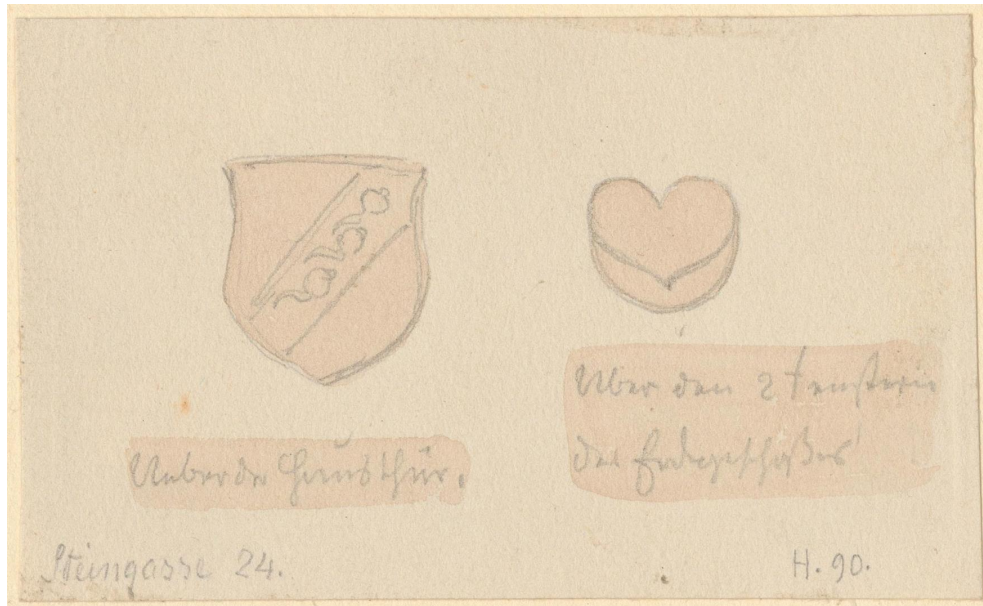 Ueber der Hausthür.
Über den 2 Fenstern
des Erdgeschoßes
Steingasse 24.
H. 90.